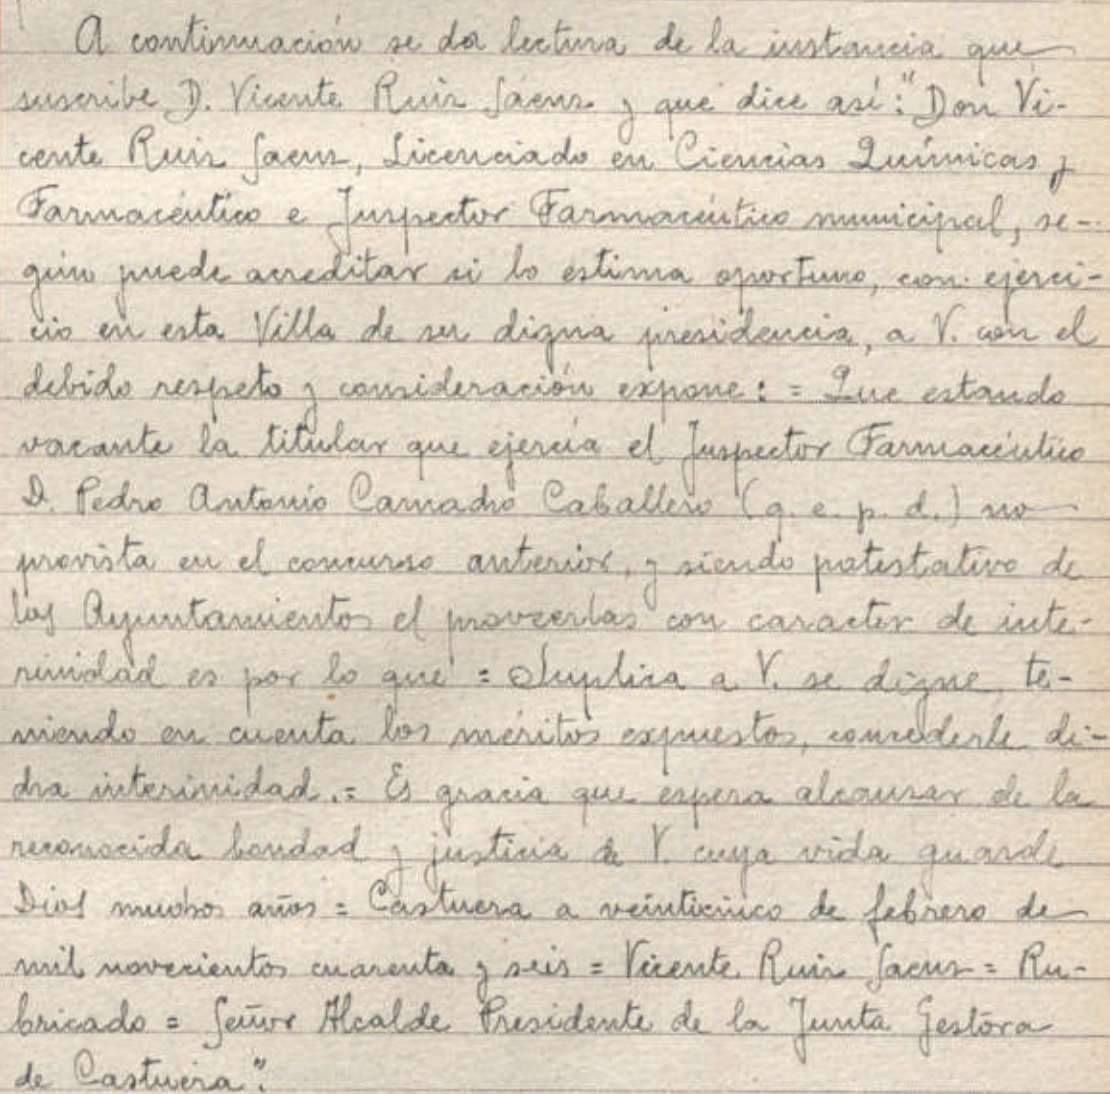 A continuación se da lectura de la instancia que
suscribe D. Vicente Ruiz Saenz y que dice así: "Don Vi-
cente Ruiz Saenz, Licenciado en Ciencias Químicas y
Farmacéutico e Inspector Farmacéutico municipal, se-
gún puede acreditar si lo estima oportuno, con ejerci-
cio en esta Villa de su digna presidencia, a V. con el
debido respeto y consideración expone: = Que estando
vacante la titular que ejercía el Inspector Farmacéutico
D. Pedro Antonio Camacho Caballero (q. e. p. d.) no
provista en el concurso anterior, y siendo potestativo de
los Ayuntamientos el proveerlas con caracter de inte-
rinidad es por lo que = Suplica a V. se digne, te-
niendo en cuenta los méritos expuestos, concederle di-
cha interinidad. = Es gracia que espera alcanzar de la
reconocida bondad y justicia de V. cuya vida guarde
Dios muchos años = Castuera a veinticinco de febrero de
mil novecientos cuarenta y seis = Vicente Ruiz Saenz = Ru-
bricado = Señor Alcalde Presidente de la Junta Gestora
de Castuera".